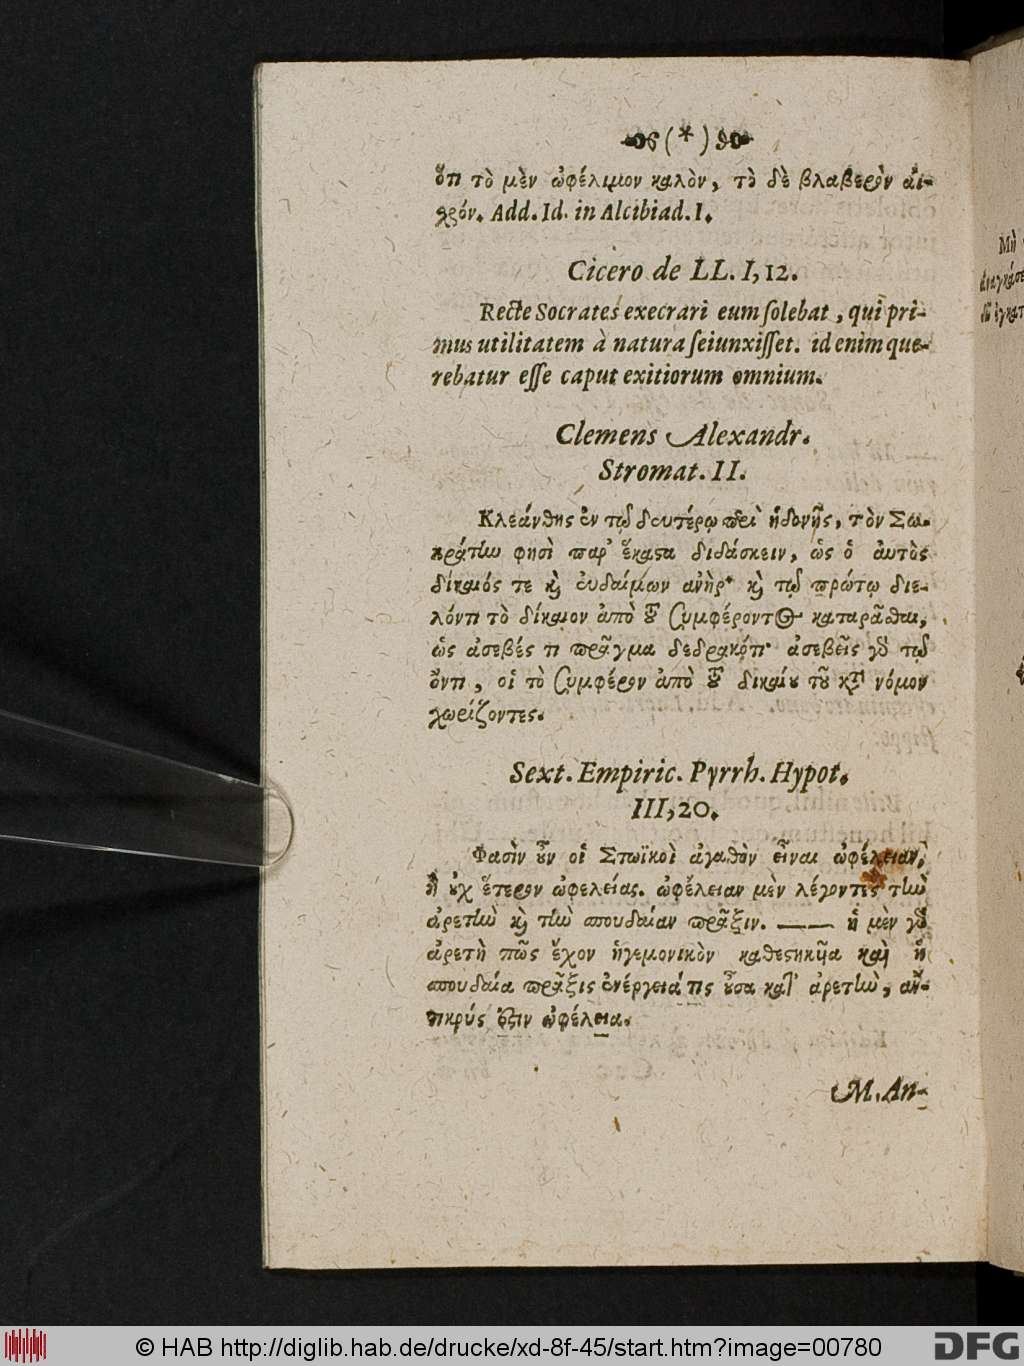 (*)
ὅτι τὸ μὲν ὠφέλιμον καλὸν, τὸ δὲ βλαβερὸν αἰ-
χρόν. Add. Id. in Alcibiad. I.
Cicero de LL. I, 12.
Recte Socrates execrari eum solebat, qui pri-
mus utilitatem à natura seiunxisset. id enim que-
rebatur esse caput exitiorum omnium.
Clemens Alexandr.
Stromat. II.
Κλεάνθης ἐν τῷ δευτέρῳ περὶ ἡδονῆς, τὸν Σω-
κράτην φησὶ παρ' ἕκαστα διδάσκειν, ὡς ὁ αὐτὸς
δίκαιός τε καὶ εὐδαίμων ἀνὴρ· καὶ τῷ πρώτῳ διε-
λόντι τὸ δίκαιον ἀπὸ τοῦ συμφέροντος καταρᾶσθαι,
ὡς ἀσεβές τι πρᾶγμα δεδρακότι· ἀσεβεῖς γὰρ τῷ
ὄντι, οἱ τὸ συμφέρον ἀπὸ τοῦ δικαίου τοῦ κατὰ νόμον
χωρίζοντες.
Sext. Empiric. Pyrrh. Hypot.
III, 20.
Φασὶν οὖν οἱ Στωϊκοὶ ἀγαθὸν εἶναι ὠφέλειαν,
ἢ οὐχ ἕτερον ὠφελείας. ὠφέλειαν μὲν λέγοντες τὴν
ἀρετὴν καὶ τὴν σπουδαίαν πρᾶξιν. —— ἡ μὲν γὰρ
ἀρετὴ πῶς ἔχον ἡγεμονικὸν καθεστηκυῖα καὶ ἡ
σπουδαία πρᾶξις ἐνέργειά τις οὖσα κατ' ἀρετὴν, ἄν-
τικρύς ἐστιν ὠφέλεια.
M. An-
Μὴ
© HAB http://diglib.hab.de/drucke/xd-8f-45/start.htm?image=00780
DFG